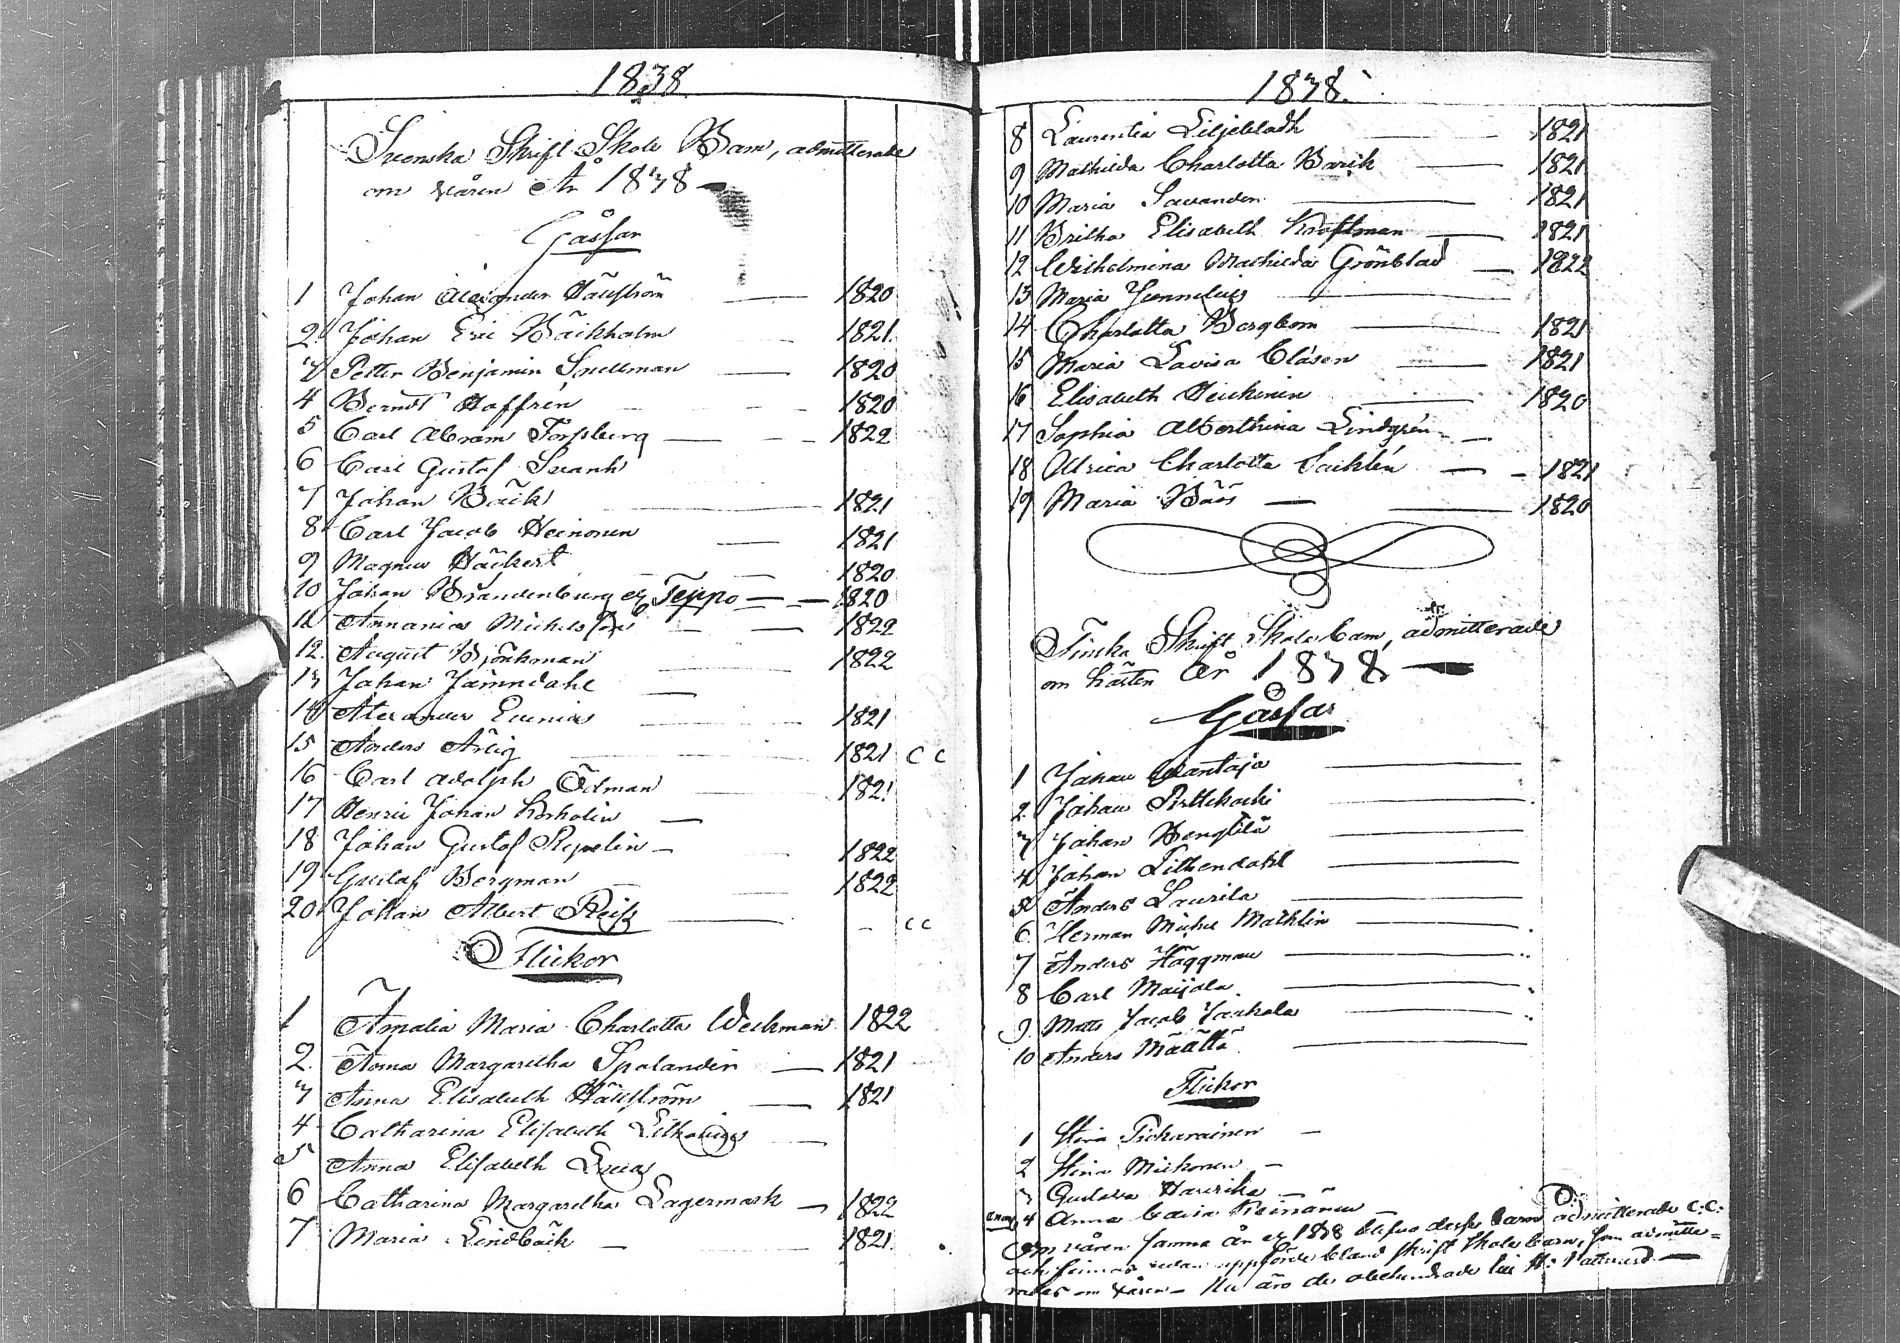 1838.
Svenska Skrift Skole Barn, admitterade
om våren År 1838
Gåssar
1 Johan Alexander Hällström 1820
2. Johan Eric Bäckholm 1821.
3 Petter Benjamin Snellman 1820
4 Berndt Hoffrén 1820
5 Carl Abram Forssberg 1822
6 Carl Gustaf Svanh
7 Johan Bäck 1821
8 Carl Jacob Heinonen 1821
9 Magnus Häckert 1820
10 Johan Brandenburg ell. Teppo 1820
11 Annanias Michelsson 1822
12. August Björkman 1822
13 Johan Jämndahl
14 Alexander Evenius 1821
15 Anders Ärlig 1821 C C
16 Carl Adolph Ödman 1821
17 Henric Johan
18 Johan Gustaf 1822
19 Gustaf Bergman 1822
20 Johan Albert C C
Flickor
1 Amalia Maria Charlotta Weckman 1822
2. Anna Margaretha Spolander 1821
3 Anna Elisabeth Hällström 1821
4 Catharina Elisabeth Lithovius
5 Anna Elisabeth
6 Catharina Margaretha Lagermark 1822
7 Maria Lindbäck 1821
1838.
8 Laurentia Liljebladh 1821
9 Mathilda Charlotta 1821
10 Maria Savander 1821
11 Britha Elisabeth Kroftman 1821
12 Wilhelmina Mathilda Grönblad 1822
13 Maria Junnelius
14 Charlotta Bergbom 1821
15 Maria Lovisa Clásen 1821
16 Elisabeth Heickinen 1820
17 Sophia Albertina Lindgrén
18 Ulrica Charlotta 1821
19 Maria Bäös 1820
Finska Skrift Skole barn, admitterade
om hösten År 1838
Gåssar
1 Johan
2. Johan Pirttikoski
3 Johan Bengtilä
4 Johan Lithendahl
5 Anders Laurila
6. Herman Michel Mathlin
7 Anders Häggman
8 Carl Maijala
9. Matts Jacob Jaakola
10 Anders Määttä
Flickor
1 Stina Pickarainen
2 Stina Mickonen
3 Gustava
4 Anna Caisa Keinänen
Om våren samma år 1838 blefvo desse barn admitterade C.C.
och finnas redan uppförde bland skrift skole barn, som admitte=
rades om våren. Nu äro de